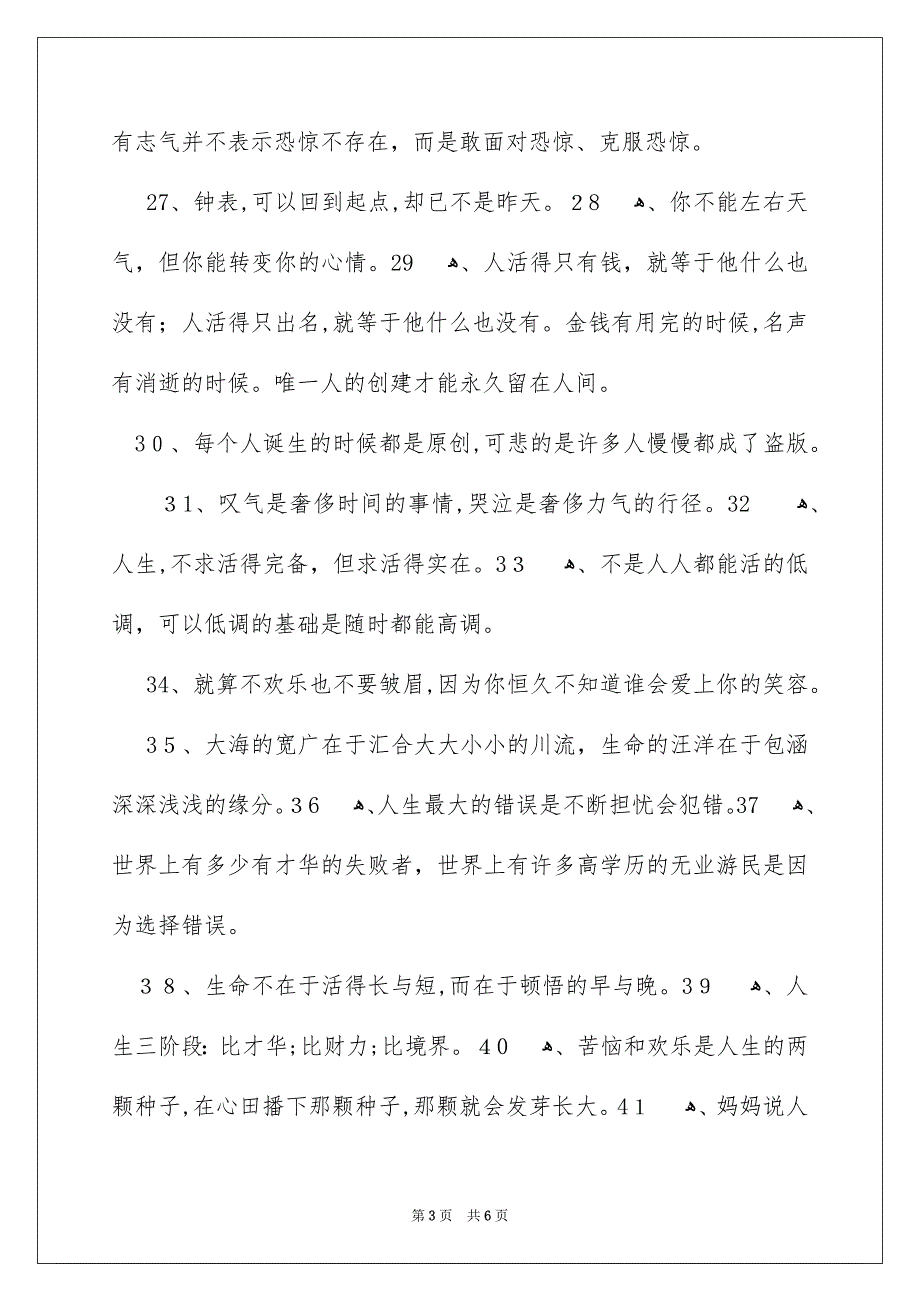 有志气并不表示恐惊不存在，而是敢面对恐惊、克服恐惊。
27、钟表,可以回到起点,却已不是昨天。28 ﻫ、你不能左右天
气，但你能转变你的心情。29 ﻫ、人活得只有钱，就等于他什么也
没有；人活得只出名,就等于他什么也没有。金钱有用完的时候,名声
有消逝的时候。唯一人的创建才能永久留在人间。
30、每个人诞生的时候都是原创,可悲的是许多人慢慢都成了盗版。
31、叹气是奢侈时间的事情,哭泣是奢侈力气的行径。32 ﻫ、
人生,不求活得完备，但求活得实在。33 ﻫ、不是人人都能活的低
调，可以低调的基础是随时都能高调。
34、就算不欢乐也不要皱眉,因为你恒久不知道谁会爱上你的笑容。
35、大海的宽广在于汇合大大小小的川流，生命的汪洋在于包涵
深深浅浅的缘分。36 ﻫ、人生最大的错误是不断担忧会犯错。37 ﻫ、
世界上有多少有才华的失败者，世界上有许多高学历的无业游民是因
为选择错误。
38、生命不在于活得长与短,而在于顿悟的早与晚。39 ﻫ、人
生三阶段：比才华;比财力;比境界。40 ﻫ、苦恼和欢乐是人生的两
颗种子,在心田播下那颗种子,那颗就会发芽长大。41 ﻫ、妈妈说人
第3页 共6页